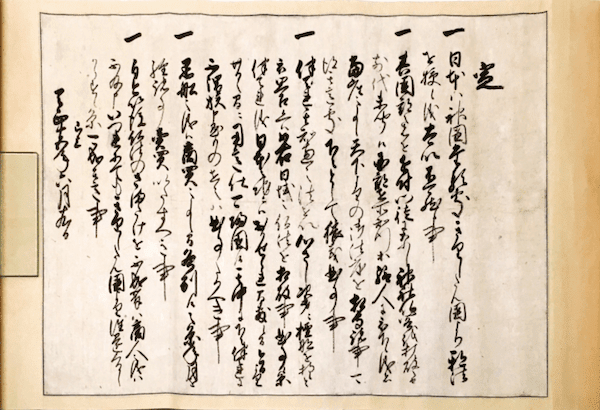 定
一 日本ハ神国たる処きりしたん国より邪法
を授候儀太以不可然候事
一 其国郡之者を近付門徒になし神社仏閣を打破之由
前代未聞候国郡在所知行等給人に被下候儀者
当座之事候天下よりの御法度を相守諸事可
得其意処下々として猥義曲事事
一 伴天連其知恵之法を以心さし次第ニ檀那を持候と
被思召候ヘハ如右日域之仏法を相破事曲事候条
伴天連儀日本之地ニハおかせられ間敷候間今日より
廿日之間ニ用意仕可帰国候其中に下々伴天連に
不謂族申懸もの在之ハ曲事たるへき事
一 黒船之儀ハ商買之事候間各別候之条年月を
経諸事売買いたすへき事
一 自今以後仏法のさまたけを不成輩ハ商人之儀ハ
不及申いつれにてもきりしたん国より往還くるし
からす候条可成其意事
已上
天正十五年六月十九日